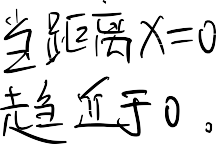 当距离X=0
趋近于0。